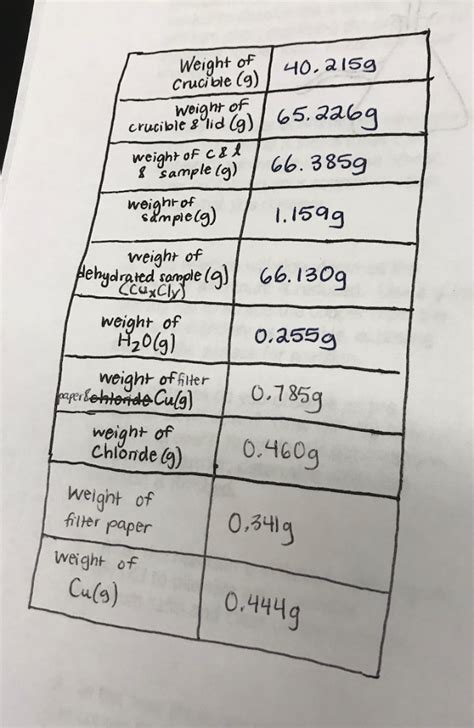 Weight of
crucible (g)
40.215g
weight of
crucible & lid (g)
65.226g
weight of c & l
& sample (g)
66.385g
weight of
sample (g)
1.159g
weight of
dehydrated sample (g)
(CuxCly)
66.130g
weight of
H2O (g)
0.255g
weight of filter
paper & chloride Cu(g)
0.785g
weight of
Chloride (g)
0.460g
weight of
filter paper
0.341g
weight of
Cu(g)
0.444g